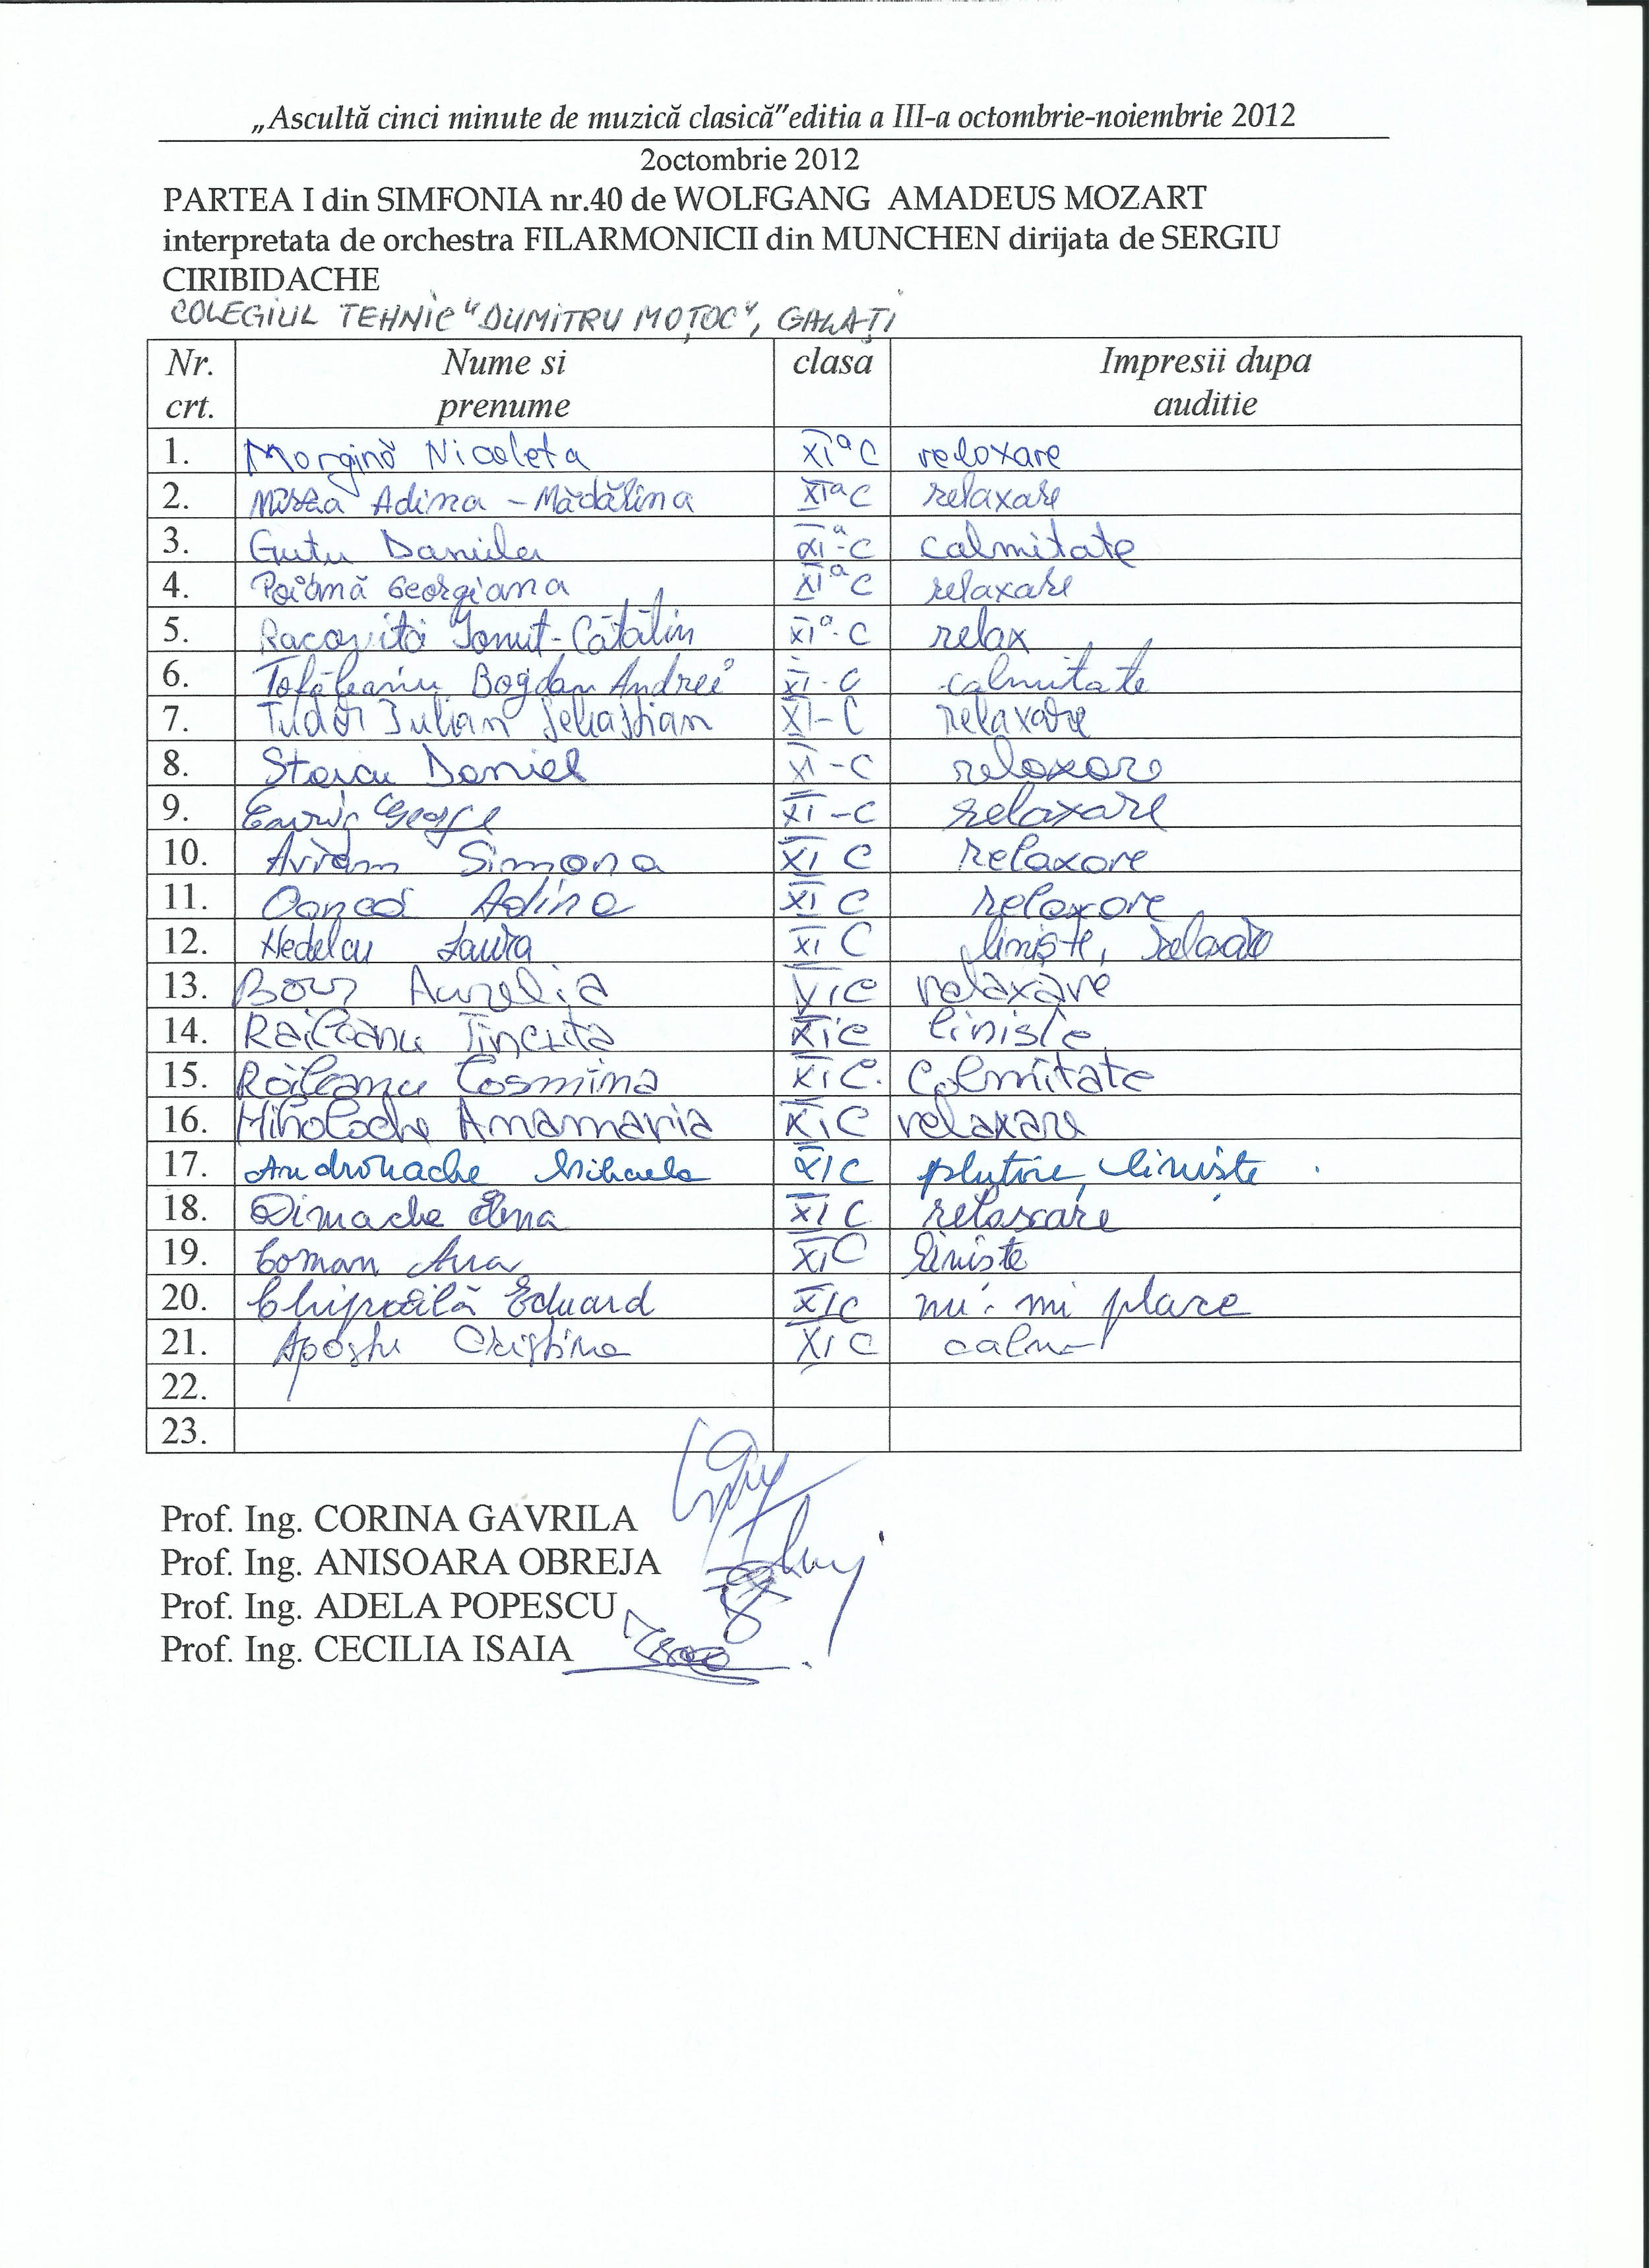 „Ascultă cinci minute de muzică clasică"editia a III-a octombrie-noiembrie 2012
2octombrie 2012
PARTEA I din SIMFONIA nr.40 de WOLFGANG AMADEUS MOZART
interpretata de orchestra FILARMONICII din MUNCHEN dirijata de SERGIU
CIRIBIDACHE
COLEGIUL TEHNIC "DUMITRU MOȚOC", GALAȚI
Nr. crt. Nume si prenume clasa Impresii dupa auditie
1. Morgină Nicoleta XI a C relaxare
2. Adina - Mădălina XI a C relaxare
3. Gutu Daniela XI a-C calmitate
4. Poiană Georgiana XI a C relaxare
5. Racovita Ionut-Cătălin XI a-C relax
6. Bogdan Andrei XI-C calmitate
7. Tudor Iulian Sebastian XI-C relaxare
8. Stoicu Daniel XI-C relaxare
9. George XI-C relaxare
10. Avram Simona XI C relaxare
11. Oancă Adina XI C relaxare
12. Nedelcu Laura XI C liniște, relaxare
13. Aurelia XI C relaxare
14. Raileanu Tincuta XI C liniste
15. Răileanu Cosmina XI C. Calmitate
16. Miholache Anamaria XI C relaxare
17. Andronache Mihaela XI C plutire, liniște
18. Dimache Elena XI C relaxare
19. Coman Ana XI C liniste
20. Eduard XI C nu-mi place
21. Apostu Cristina XI C calm
22.
23.
Prof. Ing. CORINA GAVRILA
Prof. Ing. ANISOARA OBREJA
Prof. Ing. ADELA POPESCU
Prof. Ing. CECILIA ISAIA